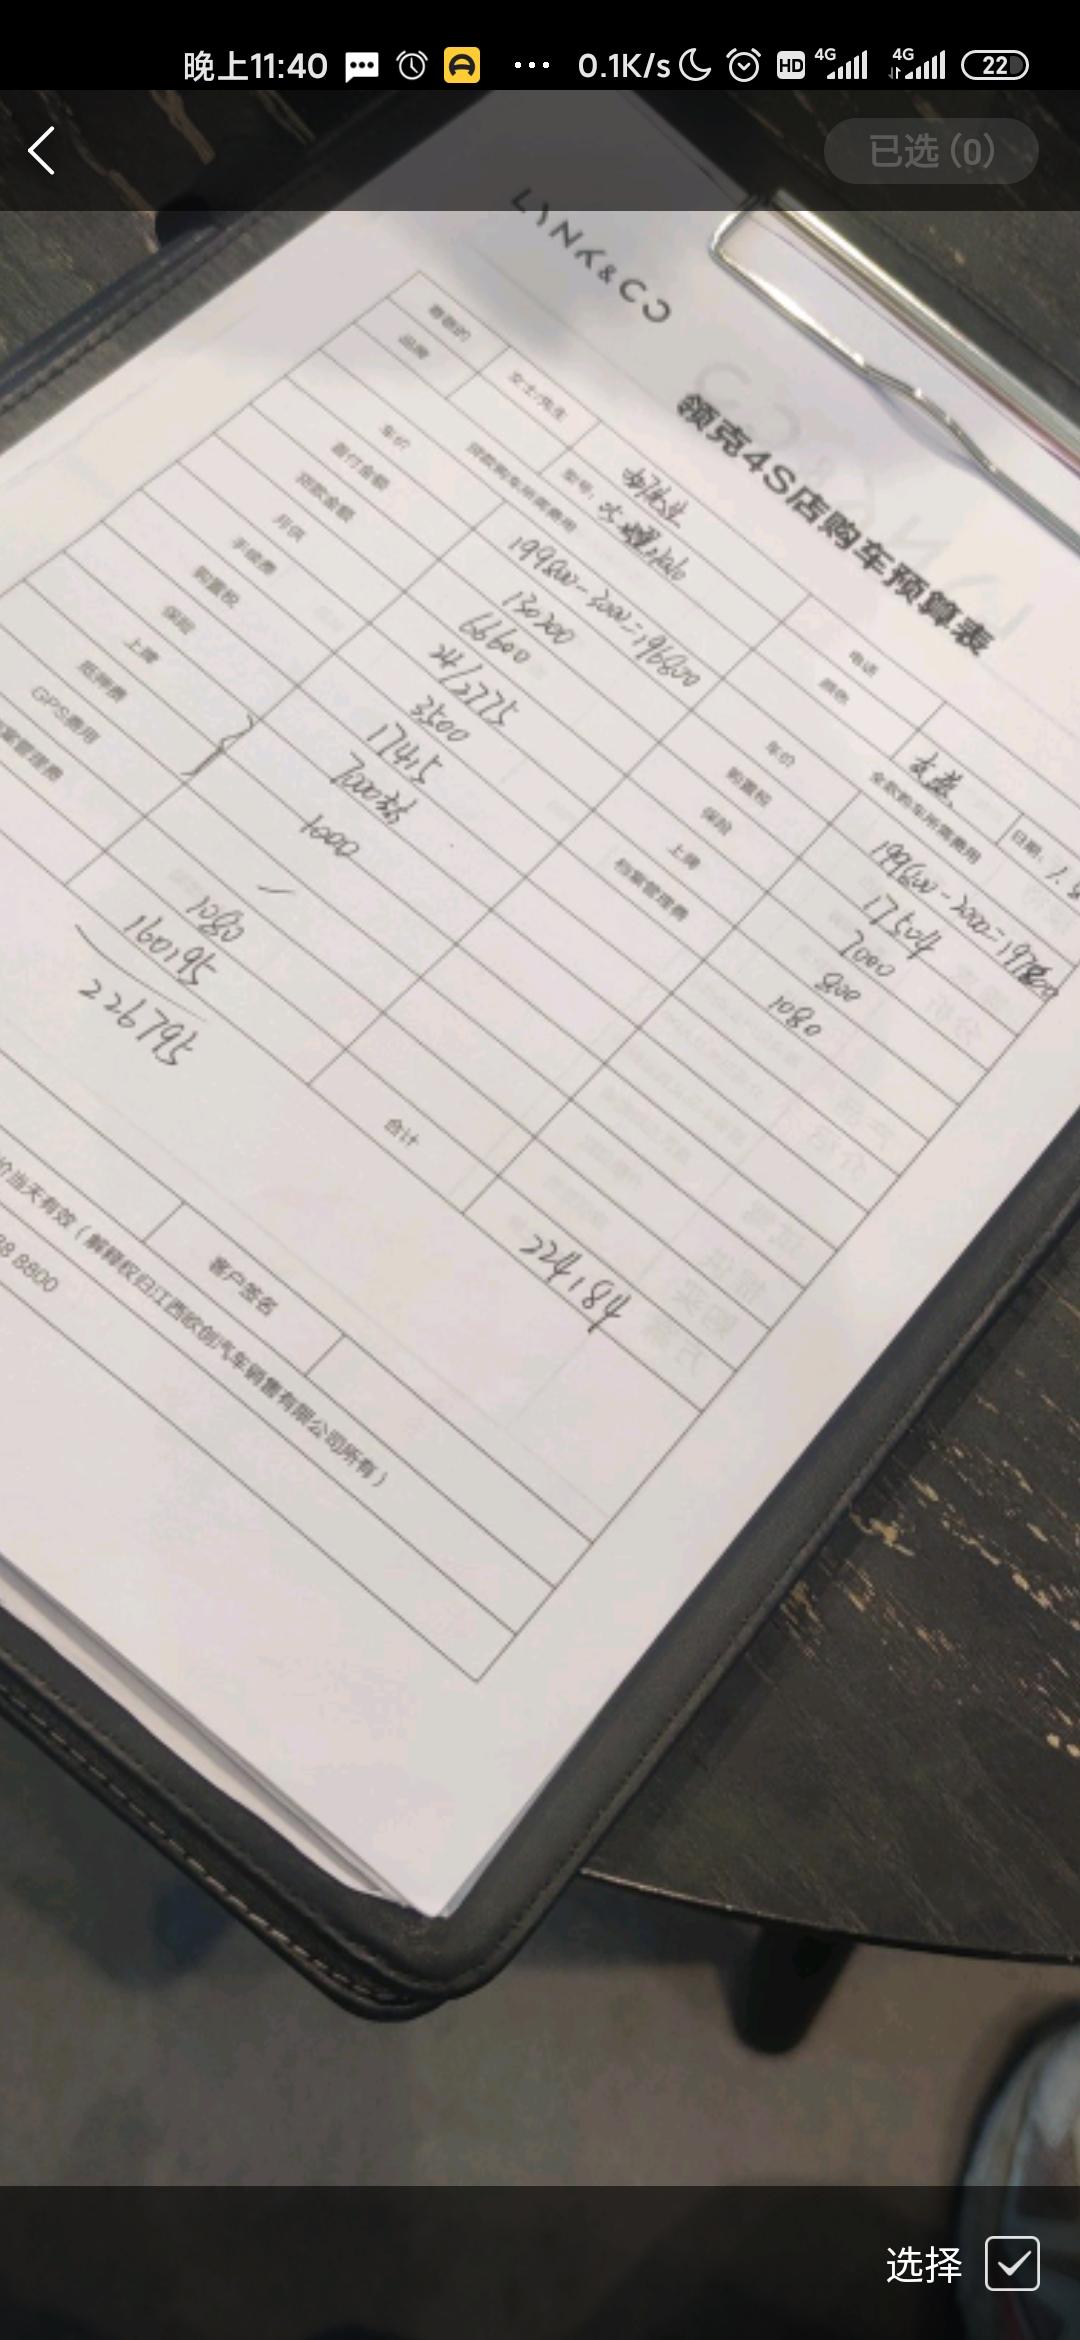 晚上11:40 0.1K/s HD 4G 4G 22
已选 (0)
LYNK&CO
领克4S店购车预算表
尊敬的 女士/先生 电话
品牌 型号: 颜色 日期:
贷款购车所需费用 全款购车所需费用
车价 199800-3000=196800 车价 199800-2000=197800
首付金额 130200 购置税 17504
贷款金额 66600 保险 7000
月供 24/2775 上牌 800
手续费 3500 档案管理费 1080
购置税 17415
保险 7000
上牌 1000
抵押费
GPS费用
案管理费 1080
160195
226795 合计 224184
客户签名
价当天有效(解释权归江西欧创汽车销售有限公司所有)
88 8800
选择